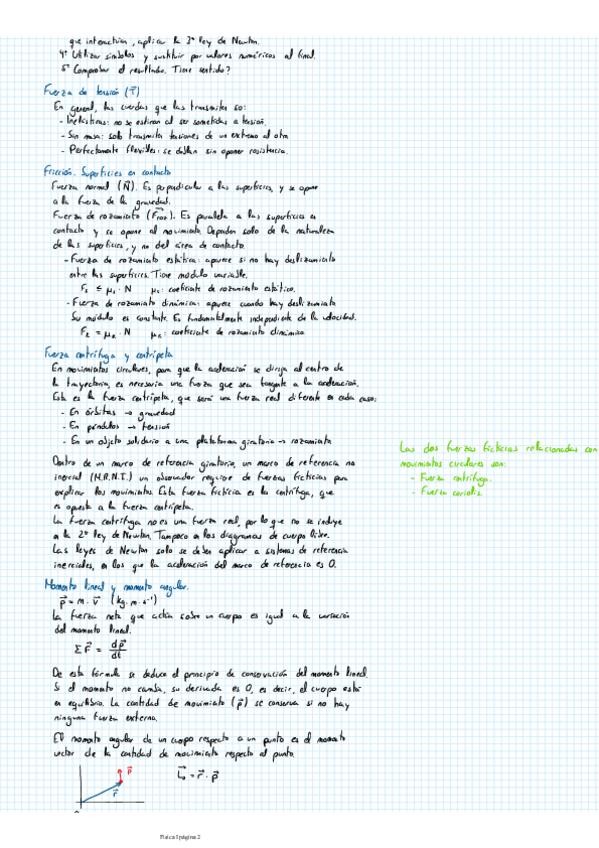 que interactúan, aplicar la 3ª ley de Newton.
4º Utilizar símbolos y sustituir por valores numéricos al final.
5º Comprobar el resultado. Tiene sentido?
Fuerza de tensión (T)
En general, las cuerdas que las transmiten son:
- Inelásticas: no se estiran al ser sometidas a tensión.
- Sin masa: solo transmiten tensiones de un extremo al otro
- Perfectamente flexibles: se doblan sin oponer resistencia.
Fricción. Superficies en contacto
Fuerza normal (N). Es perpendicular a las superficies, y se opone
a la fuerza de la gravedad.
Fuerza de rozamiento (Froz). Es paralela a las superficies en
contacto y se opone al movimiento. Depende solo de la naturaleza
de las superficies, y no del área de contacto.
- Fuerza de rozamiento estática: aparece si no hay deslizamiento
entre las superficies. Tiene módulo variable.
F ≤ μ · N μ: coeficiente de rozamiento estático.
- Fuerza de rozamiento dinámica: aparece cuando hay deslizamiento
Su módulo es constante. Es fundamentalmente independiente de la velocidad.
F = μ · N μ: coeficiente de rozamiento dinámico
Fuerza centrífuga y centrípeta
En movimientos circulares, para que la aceleración se dirija al centro de
la trayectoria, es necesaria una fuerza que sea tangente a la aceleración.
Esta es la fuerza centrípeta, que será una fuerza real diferente en cada caso:
- En órbitas → gravedad
- En péndulos → tensión
- En un objeto solidario a una plataforma giratoria → rozamiento
Las dos fuerzas ficticias relacionadas con
movimientos circulares son:
- Fuerza centrífuga.
- Fuerza coriolis.
Dentro de un marco de referencia giratorio, un marco de referencia no
inercial (M.R.N.I.) un observador requiere de fuerzas ficticias para
explicar los movimientos. Esta fuerza ficticia es la centrífuga, que
es opuesta a la fuerza centrípeta.
La fuerza centrífuga no es una fuerza real, por lo que no se incluye
a la 2ª ley de Newton. Tampoco a los diagramas de cuerpo libre.
Las leyes de Newton solo se deben aplicar a sistemas de referencia
inerciales, en los que la aceleración del marco de referencia es 0.
Momento lineal y momento angular.
p = m · v (kg · m · s⁻¹)
La fuerza neta que actúa sobre un cuerpo es igual a la variación
del momento lineal.
ΣF = dp/dt
De esta fórmula se deduce el principio de conservación del momento lineal.
Si el momento no cambia, su derivada es 0, es decir, el cuerpo está
en equilibrio. La cantidad de movimiento (p) se conserva si no hay
ninguna fuerza externa.
El momento angular de un cuerpo respecto a un punto es el momento
vector de la cantidad de movimiento respecto al punto.
p
r
L = r · p
Física I página 2